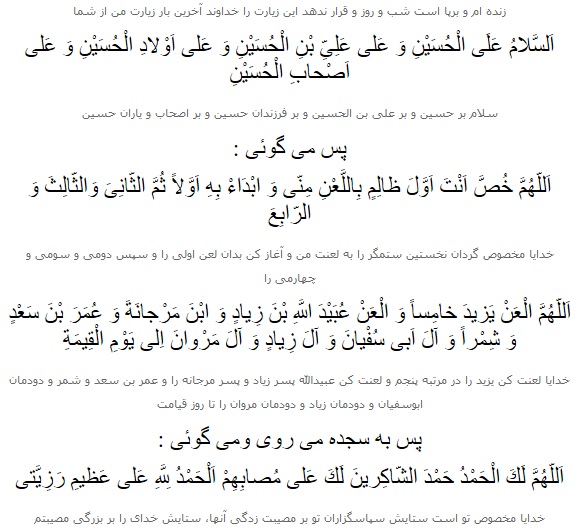 زنده ام و برپا است شب و روز و قرار ندهد این زیارت را خداوند آخرین بار زیارت من از شما
اَلسَّلامُ عَلَی الْحُسَیْنِ وَ عَلی عَلِیِّ بْنِ الْحُسَیْنِ وَ عَلی اَوْلادِ الْحُسَیْنِ وَ عَلی
اَصْحابِ الْحُسَیْنِ
سلام بر حسین و بر علی بن الحسین و بر فرزندان حسین و بر اصحاب و یاران حسین
پس می گوئی :
اَللّهُمَّ خُصَّ اَنْتَ اَوَّلَ ظالِمٍ بِاللَّعْنِ مِنّی وَ ابْدَاءْ بِهِ اَوَّلاً ثُمَّ الثّانِیَ وَالثّالِثَ وَ
الرّابِعَ
خدایا مخصوص گردان نخستین ستمگر را به لعنت من و آغاز کن بدان لعن اولی را و سپس دومی و سومی و
چهارمی را
اَللّهُمَّ الْعَنْ یَزیدَ خامِساً وَ الْعَنْ عُبَیْدَ اللَّهِ بْنَ زِیادٍ وَ ابْنَ مَرْجانَةَ وَ عُمَرَ بْنَ سَعْدٍ
وَ شِمْراً وَ آلَ اَبی سُفْیانَ وَ آلَ زِیادٍ وَ آلَ مَرْوانَ اِلی یَوْمِ الْقِیمَةِ
خدایا لعنت کن یزید را در مرتبه پنجم و لعنت کن عبیدالله پسر زیاد و پسر مرجانه را و عمر بن سعد و شمر و دودمان
ابوسفیان و دودمان زیاد و دودمان مروان را تا روز قیامت
پس به سجده می روی ومی گوئی :
اَللّهُمَّ لَكَ الْحَمْدُ حَمْدَ الشّاکِرینَ لَكَ عَلی مُصابِهِمْ اَلْحَمْدُ لِلَّهِ عَلی عَظیمِ رَزِیَّتی
خدایا مخصوص تو است ستایش سپاسگزاران تو بر مصیبت زدگی آنها، ستایش خدای را بر بزرگی مصیبتم